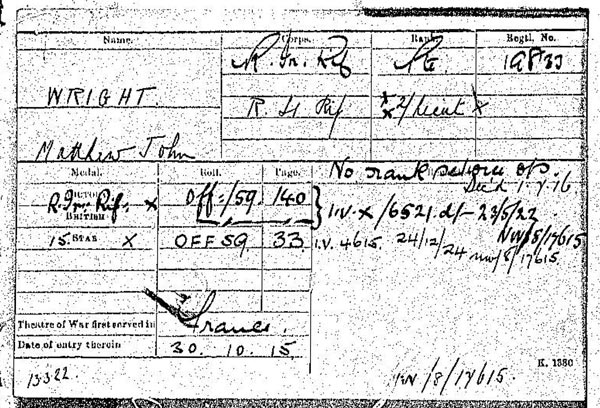 Name. Corps. Rank. Regtl. No.
R. Ir. Rif Pte 19833
WRIGHT. R Ir Rif x 2/Lieut x
Matthew John
Medal. Roll. Page. No rank before op.
Died 1.7.16
VICTORY
R. Irr. Rif. x Off./159. 140 I.V. x /6521 d/- 23/5/22
BRITISH NW/8/17615
15 STAR x OFF 59 33 I.V. 4615. 24/12/24 NW/8/17615
Theatre of War first served in France.
Date of entry therein 30. 10. 15.
K. 1380
13322 NW/8/17615.